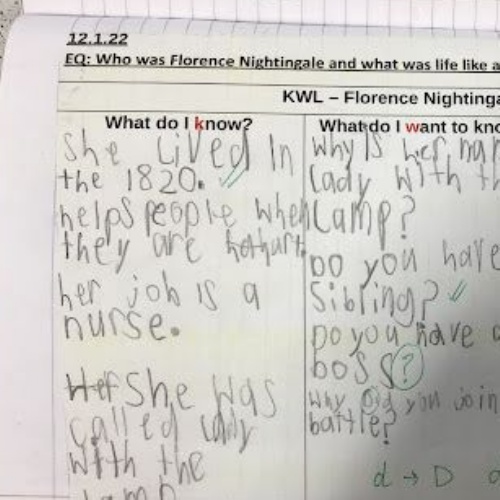 12.1.22
EQ: Who was Florence Nightingale and what was life like a
KWL – Florence Nightinga
What do I know?
she Lived In
the 1820.
helps people when
they are hurt.
her job is a
nurse.
She was
called lady
with the
lamp
What do I want to kno
Why Is her nam
Lady with th
Lamp?
Do you have
Sibling?
Do you have a
boss?
Why Did you join
battle?
d → D